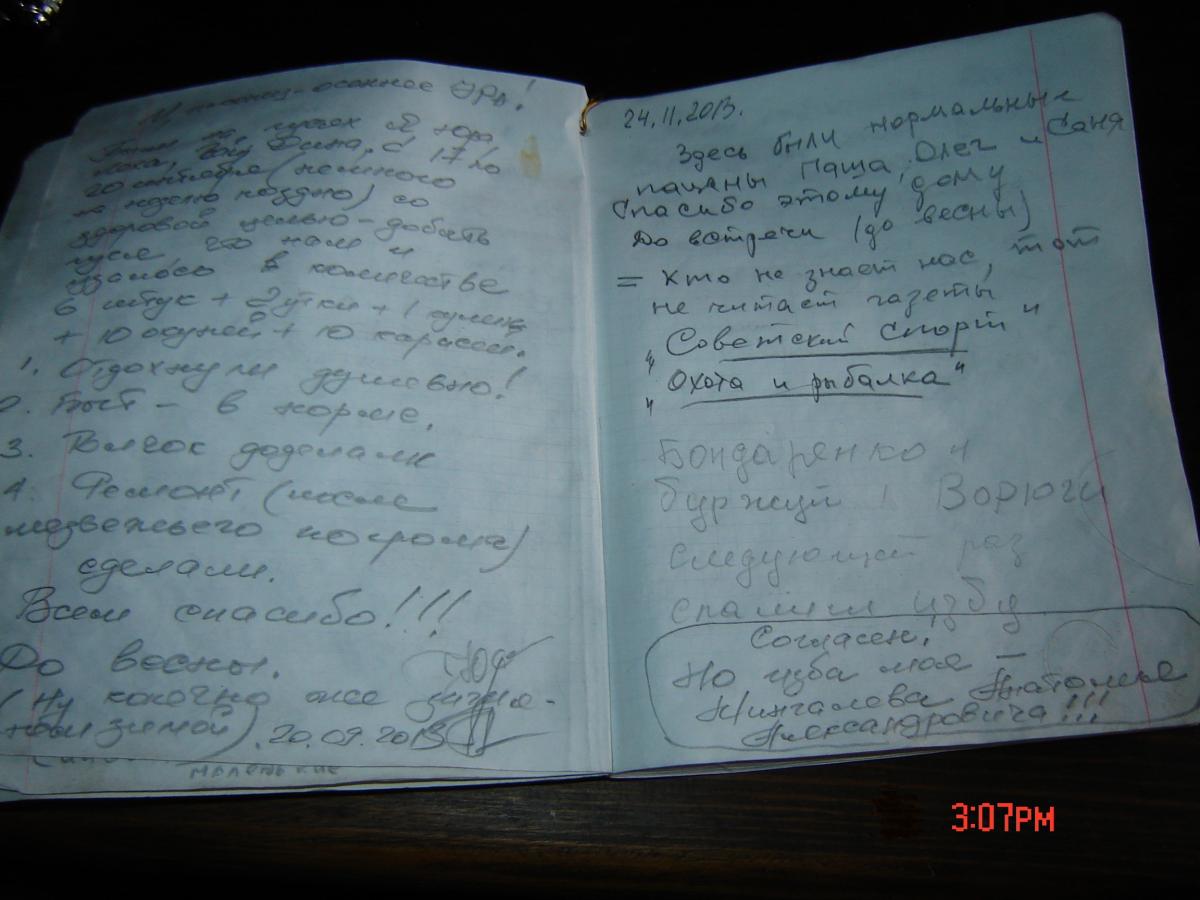 И наконец-осеннее
Были на гусях Я Юра
20 сентября (немного
на неделю поздно) со
здоровой целью - добыть
гуся что нам и
удалось в количестве
6 штук + 2 утки + 1
+ 10 окуней + 10 карасей.
1. Отдохнули душевно!
2. Быт - в норме.
3. Волчок доделали
4. Ремонт (после
медвежьего погрома)
сделали.
Всем спасибо!!!
До весны.
(Ну конечно же
зимой). 20.09.2013
маленькие
24.11.2013.
Здесь были нормальные
пацаны Паша, Олег и Саня
Спасибо этому дому
До встречи (до весны)
= Кто не знает нас, тот
не читает газеты
„Советский Спорт"
„Охота и рыбалка"
Бондаренко и
буржуи! Ворюги
следующий раз
спалим избу
Согласен,
Но изба моя —
Мингалева Анатолия
Александровича!!!
3:07PM